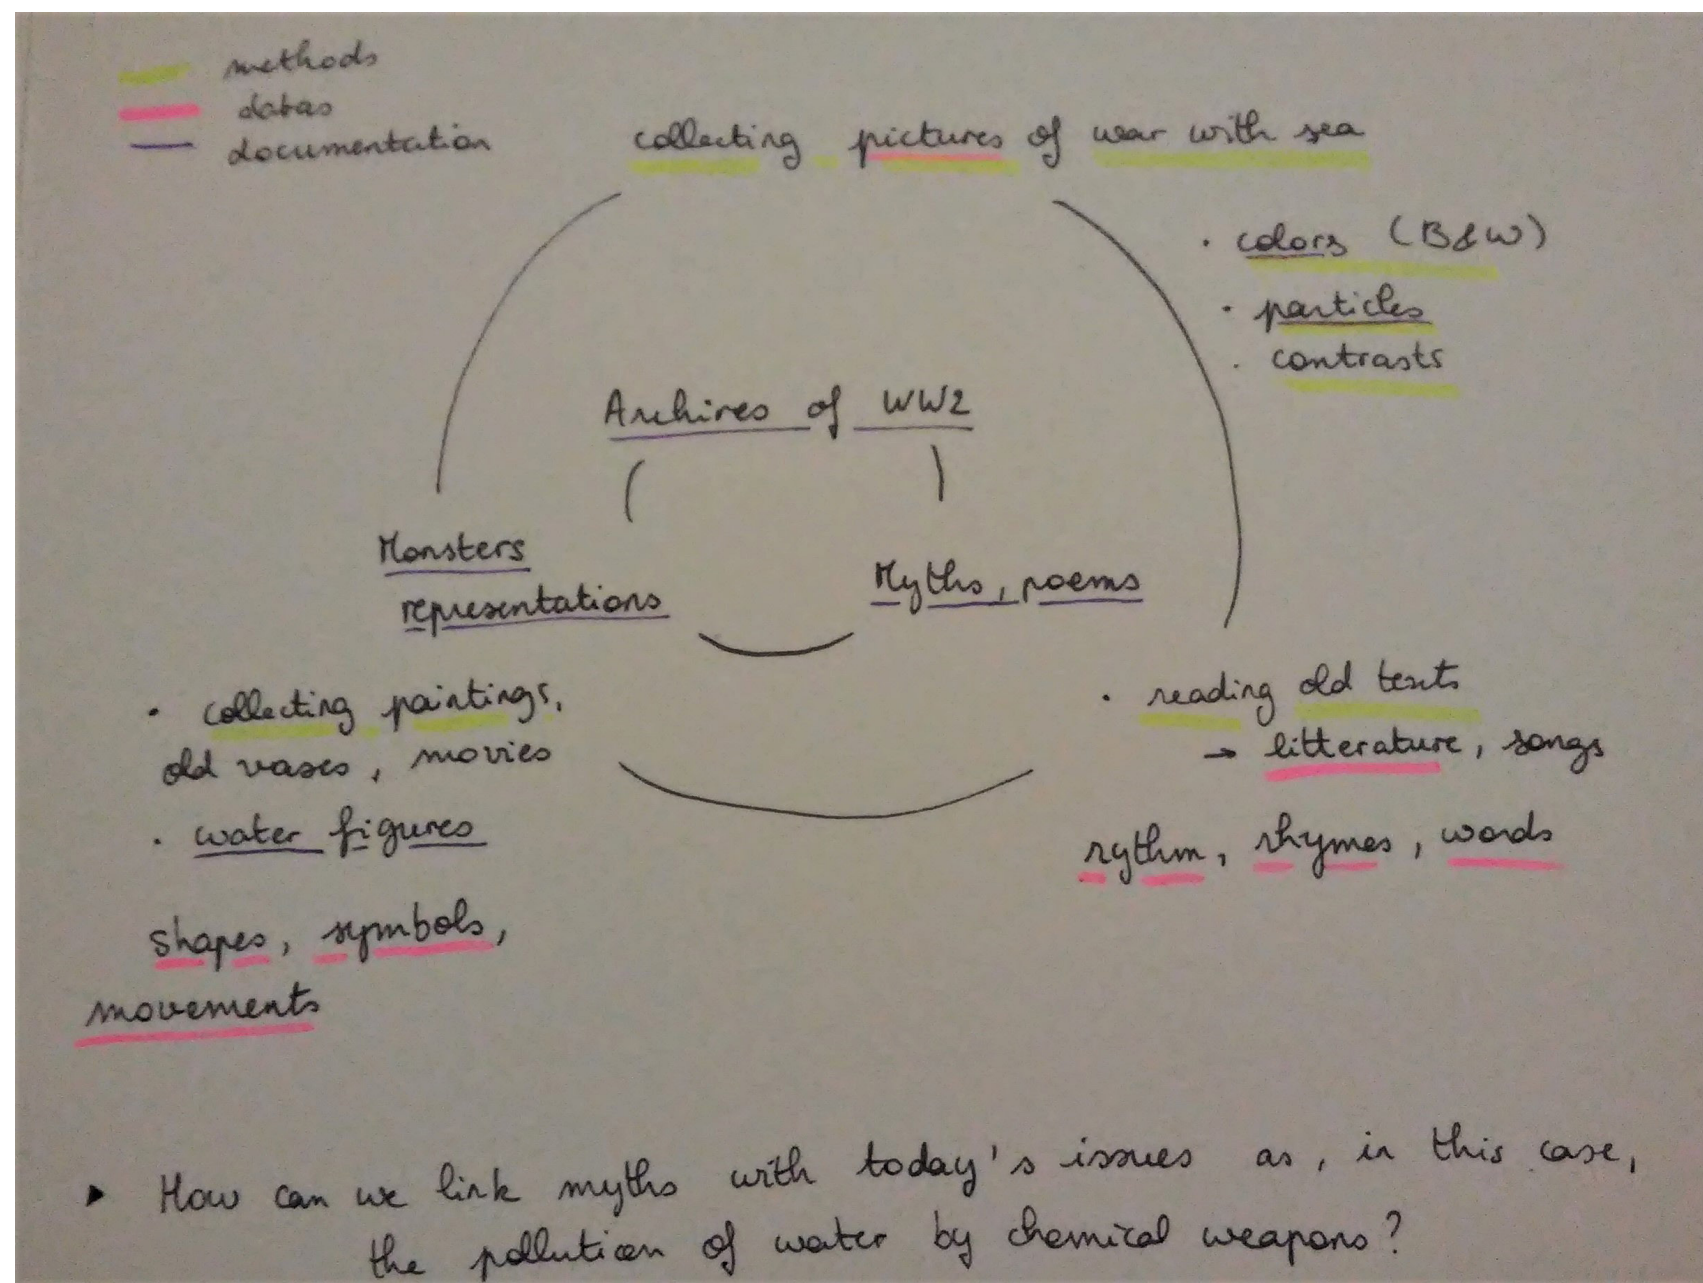 methods
datas
documentation
collecting pictures of war with sea
· colors (B&W)
· particles
· contrasts
Archives of WW2
Monsters
representations
Myths, poems
· collecting paintings,
old vases, movies
· water figures
shapes, symbols,
movements
· reading old texts
→ litterature, songs
rythm, rhymes, words
▸ How can we link myths with today's issues as, in this case,
the pollution of water by chemical weapons?